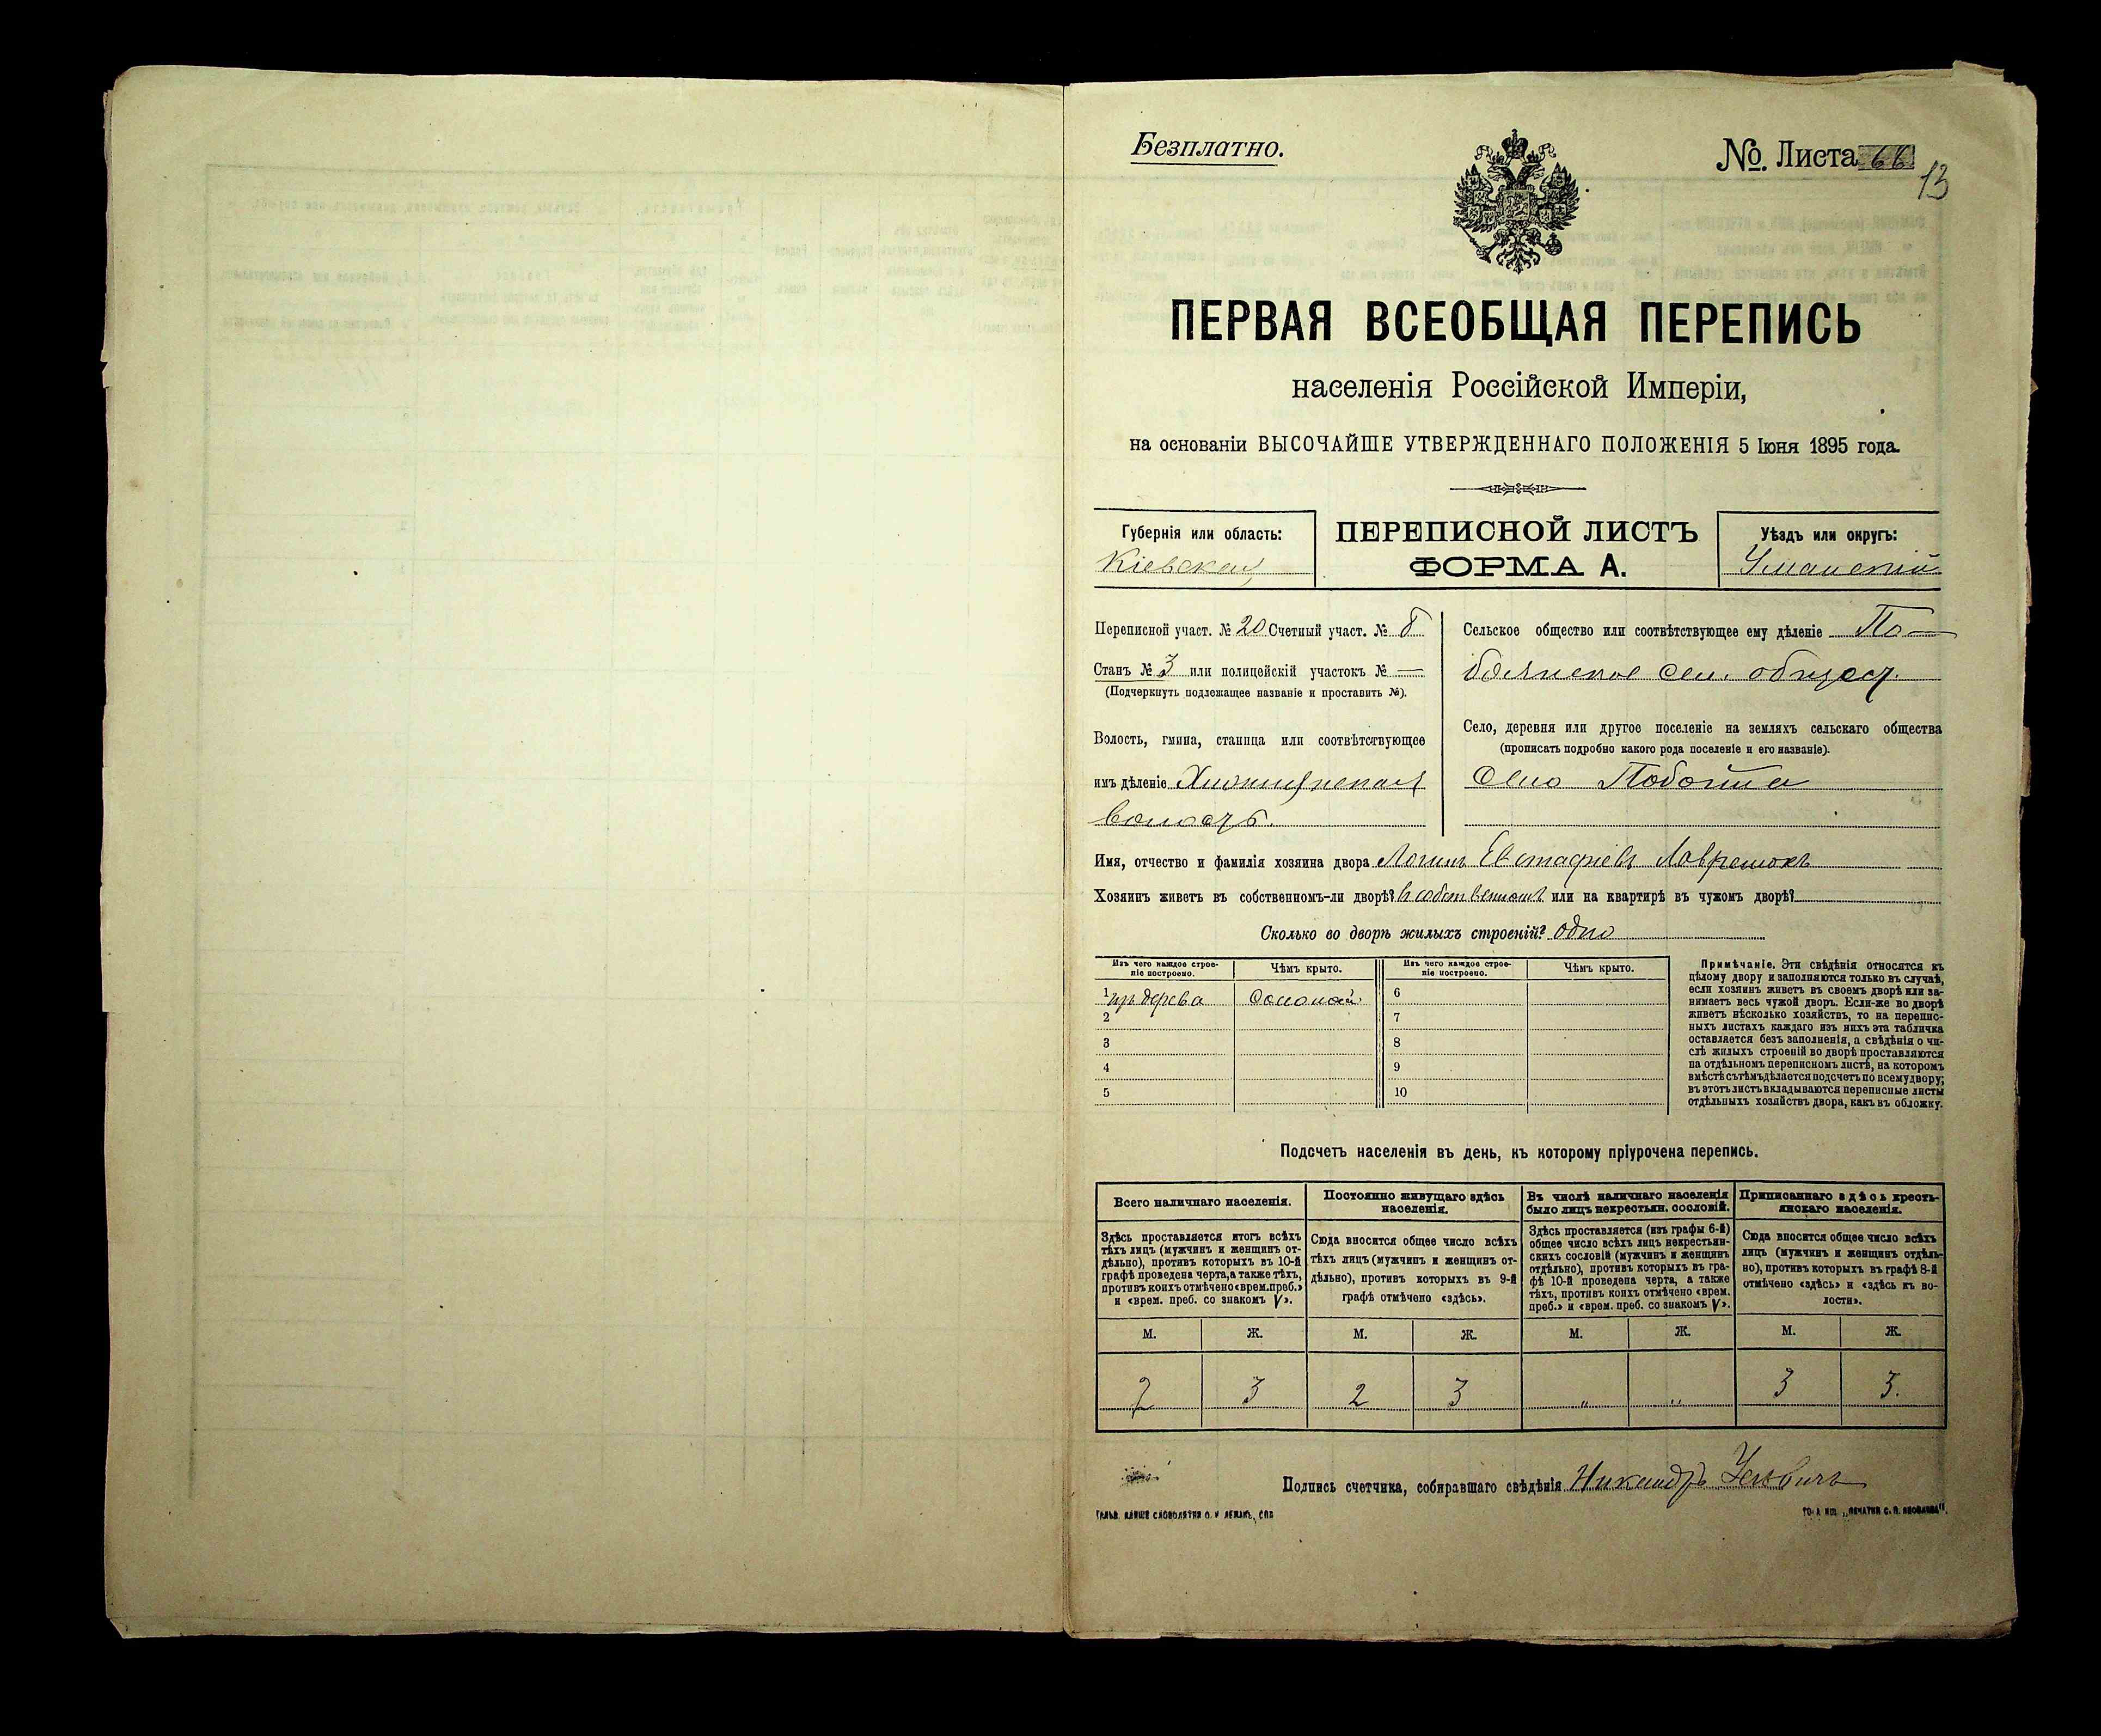 Безплатно.
№ Листа 66
13
ПЕРВАЯ ВСЕОБЩАЯ ПЕРЕПИСЬ
населенія Россійской Имперіи,
на основаніи ВЫСОЧАЙШЕ УТВЕРЖДЕННАГО ПОЛОЖЕНІЯ 5 Іюня 1895 года.
Губернія или область:
Кіевская
ПЕРЕПИСНОЙ ЛИСТЪ
ФОРМА А.
Уѣздъ или округъ:
Уманскій
Переписной участ. № 20 Счетный участ. №
Станъ № 3 или полицейскій участокъ № —
(Подчеркнуть подлежащее названіе и проставить №).
Волость, гмина, станица или соотвѣтствующее
имъ дѣленіе
волость.
Сельское общество или соотвѣтствующее ему дѣленіе По-
бойнское сел. общест.
Село, деревня или другое поселеніе на земляхъ сельскаго общества
(прописать подробно какого рода поселеніе и его названіе).
Село Побойна
Имя, отчество и фамилія хозяина двора Логинъ Евстафіевъ Лавренюкъ
Хозяинъ живетъ въ собственномъ-ли дворѣ? въ собственномъ или на квартирѣ въ чужомъ дворѣ?
Сколько во дворѣ жилыхъ строеній? одно
Изъ чего каждое строе-
ніе построено.
Чѣмъ крыто.
Изъ чего каждое строе-
ніе построено.
Чѣмъ крыто.
1 изъ дерева соломой 6
2 7
3 8
4 9
5 10
Примѣчаніе. Эти свѣдѣнія относятся къ
цѣлому двору и заполняются только въ случаѣ,
если хозяинъ живетъ въ своемъ дворѣ или за-
нимаетъ весь чужой дворъ. Если-же во дворѣ
живетъ нѣсколько хозяйствъ, то на перепис-
ныхъ листахъ каждаго изъ нихъ эта табличка
оставляется безъ заполненія, а свѣдѣнія о чи-
слѣ жилыхъ строеній во дворѣ проставляются
на отдѣльномъ переписномъ листѣ, на которомъ
вмѣстѣ съ тѣмъ дѣлается подсчетъ по всему двору;
въ этотъ листъ вкладываются переписные листы
отдѣльныхъ хозяйствъ двора, какъ въ обложку.
Подсчетъ населенія въ день, къ которому пріурочена перепись.
Всего наличнаго населенія.
Здѣсь проставляется итогъ всѣхъ
тѣхъ лицъ (мужчинъ и женщинъ от-
дѣльно), противъ которыхъ въ 10-й
графѣ проведена черта, а также тѣхъ,
противъ коихъ отмѣчено «врем. преб.»
и «врем. преб. со знакомъ V».
Постоянно живущаго здѣсь
населенія.
Сюда вносится общее число всѣхъ
тѣхъ лицъ (мужчинъ и женщинъ от-
дѣльно), противъ которыхъ въ 9-й
графѣ отмѣчено «здѣсь».
Въ числѣ наличнаго населенія
было лицъ некрестьян. сословій.
Здѣсь проставляется (изъ графы 6-й)
общее число всѣхъ лицъ некрестьян-
скихъ сословій (мужчинъ и женщинъ
отдѣльно), противъ которыхъ въ гра-
фѣ 10-й проведена черта, а также
тѣхъ, противъ коихъ отмѣчено «врем.
преб.» и «врем. преб. со знакомъ V».
Приписаннаго здѣсь кресть-
янскаго населенія.
Сюда вносится общее число всѣхъ
лицъ (мужчинъ и женщинъ отдѣль-
но), противъ которыхъ въ графѣ 8-й
отмѣчено «здѣсь» и «здѣсь къ во-
лости».
М. Ж. М. Ж. М. Ж. М. Ж.
2 3 2 3 „ „ 3 3.
Подпись счетчика, собиравшаго свѣдѣнія Никандръ